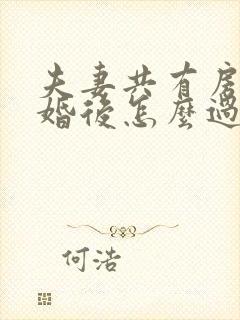 夫妻共有房
婚後怎麼過
何浩